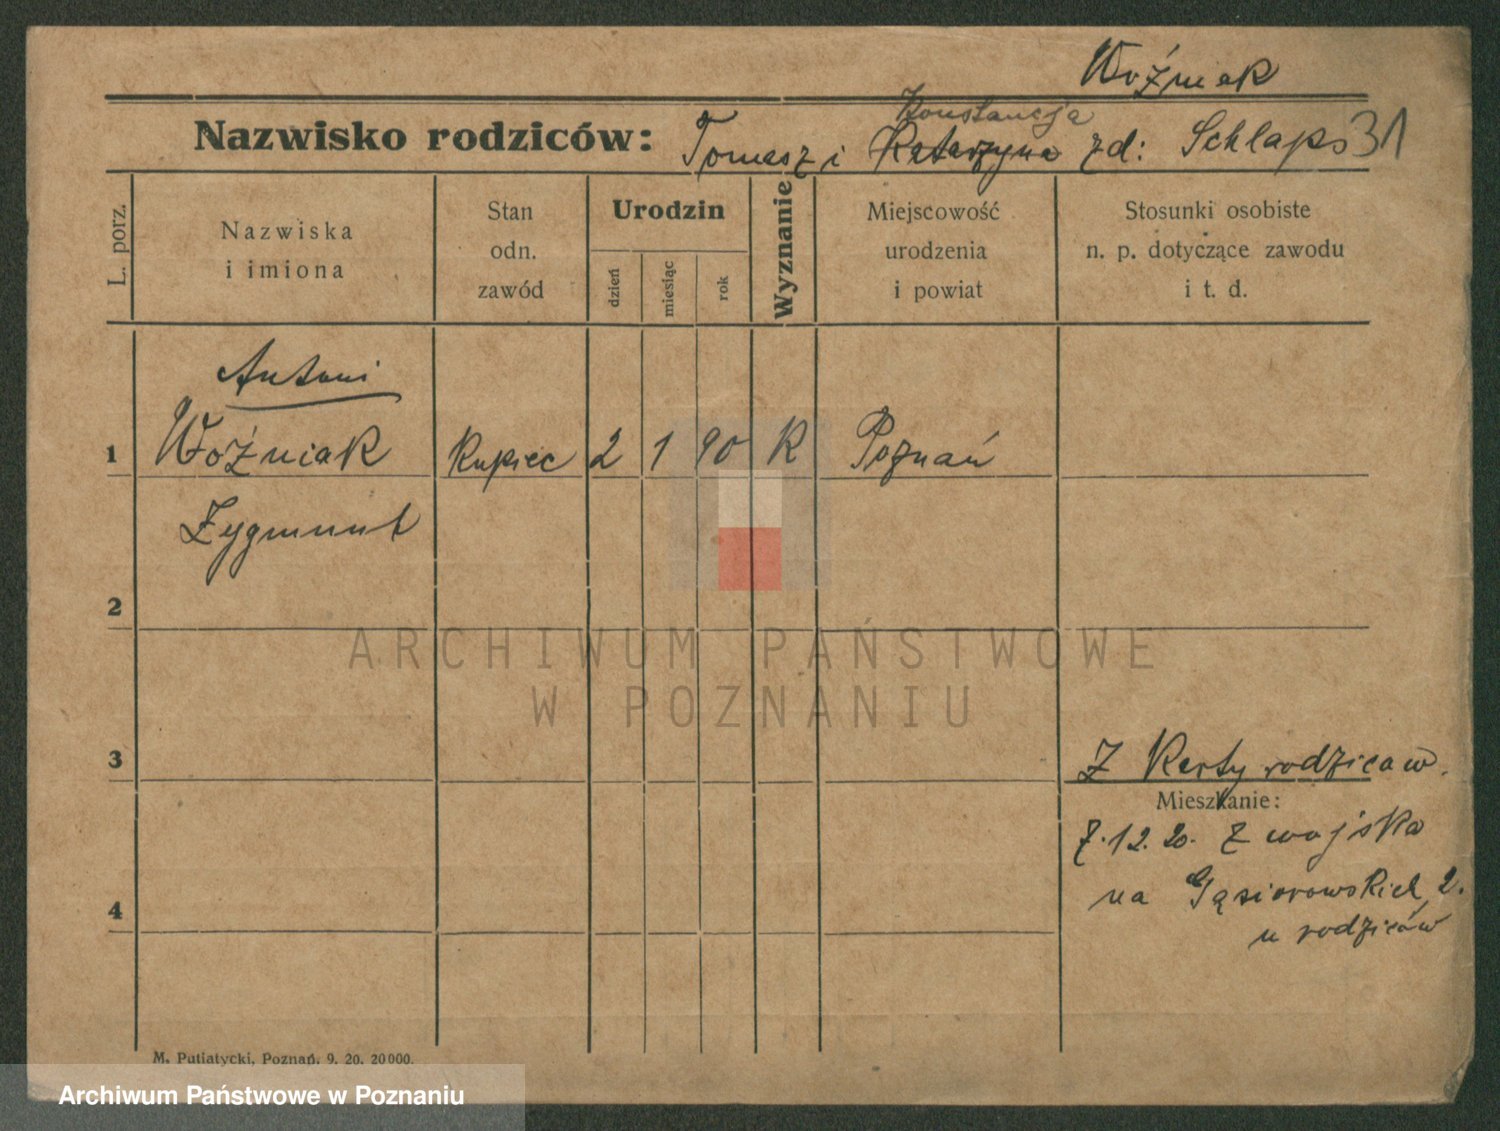 Woźniak
Konstancja
Nazwisko rodziców: Tomasz i Katarzyna zd: Schlaps 31
L. porz.
Nazwiska
i imiona
Stan
odn.
zawód
Urodzin
dzień
miesiąc
rok
Wyznanie
Miejscowość
urodzenia
i powiat
Stosunki osobiste
n. p. dotyczące zawodu
i t. d.
Antoni
1 Woźniak Kupiec 2 1 90 K Poznań
Zygmunt
2
ARCHIWUM PAŃSTWOWE
W POZNANIU
3 Z Karty rodziców.
Mieszkanie:
7.12.20. Z wojska
na Gąsiorowskich 2.
u rodziców
4
M. Putiatycki, Poznań. 9. 20. 20000.
Archiwum Państwowe w Poznaniu